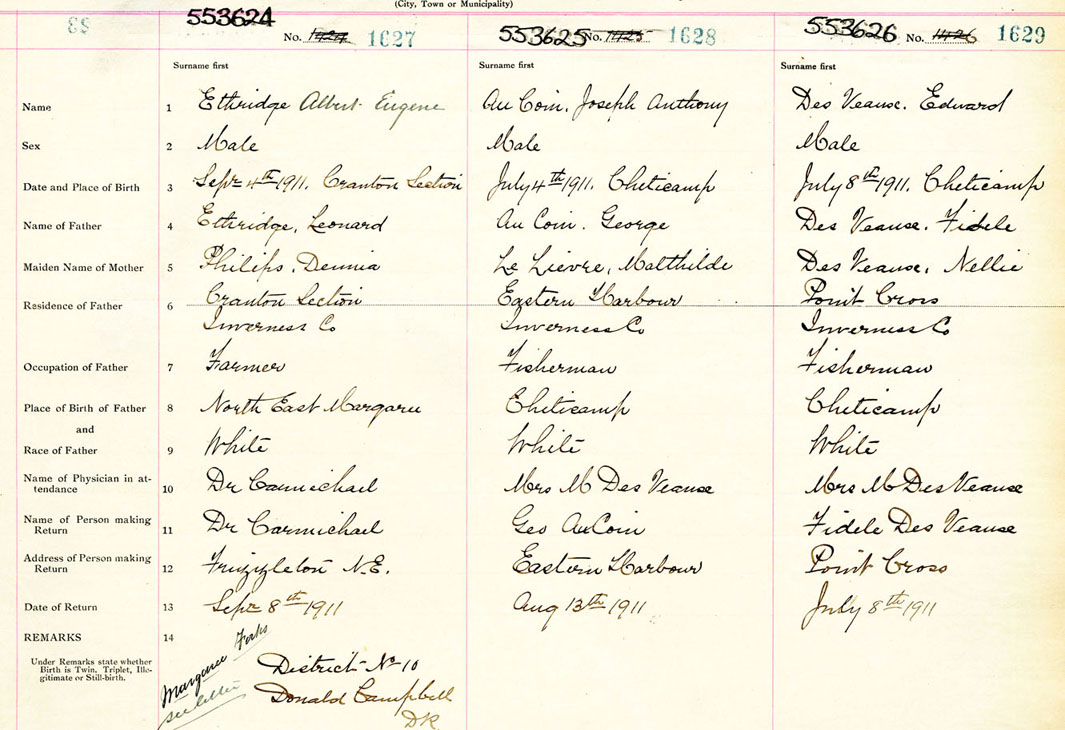 (City, Town or Municipality)
553624 No. 1424 1627
553625 No. 1425 1628
553626 No. 1426 1629
Surname first Surname first Surname first
Name 1 Ethridge Albert Eugene Au Coin. Joseph Anthony Des Veause. Edward
Sex 2 Male Male Male
Date and Place of Birth 3 Sept 4th 1911. Cranton Section July 4th 1911. Cheticamp July 8th 1911. Cheticamp
Name of Father 4 Ethridge, Leonard Au Coin. George Des Veause. Fidele
Maiden Name of Mother 5 Philips, Dennia Le Lievre, Malthilde Des Veause, Nellie
Residence of Father 6 Cranton Section Eastern Harbour Point Cross
Inverness Co Inverness Co Inverness Co
Occupation of Father 7 Farmer Fisherman Fisherman
Place of Birth of Father 8 North East Margaree Cheticamp Cheticamp
and
Race of Father 9 White White White
Name of Physician in at-
tendance 10 Dr Carmichael Mrs M Des Veause Mrs M Des Veause
Name of Person making
Return 11 Dr Carmichael Geo AuCoin Fidele Des Veause
Address of Person making
Return 12 Frizzleton N.E. Eastern Harbour Point Cross
Date of Return 13 Sept 8th 1911 Aug 13th 1911 July 8th 1911
REMARKS 14
Under Remarks state whether
Birth is Twin, Triplet, Ille-
gitimate or Still-birth.
Margaree Forks
see letter
District No 10
Donald Campbell
DR